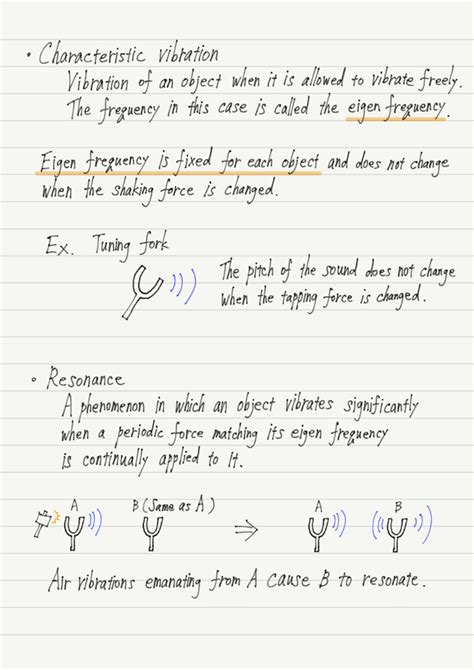 • Characteristic vibration
Vibration of an object when it is allowed to vibrate freely.
The frequency in this case is called the eigen frequency.
Eigen frequency is fixed for each object and does not change
when the shaking force is changed.
Ex. Tuning fork
The pitch of the sound does not change
when the tapping force is changed.
• Resonance
A phenomenon in which an object vibrates significantly
when a periodic force matching its eigen frequency
is continually applied to It.
A B (Same as A) → A B
Air vibrations emanating from A cause B to resonate.